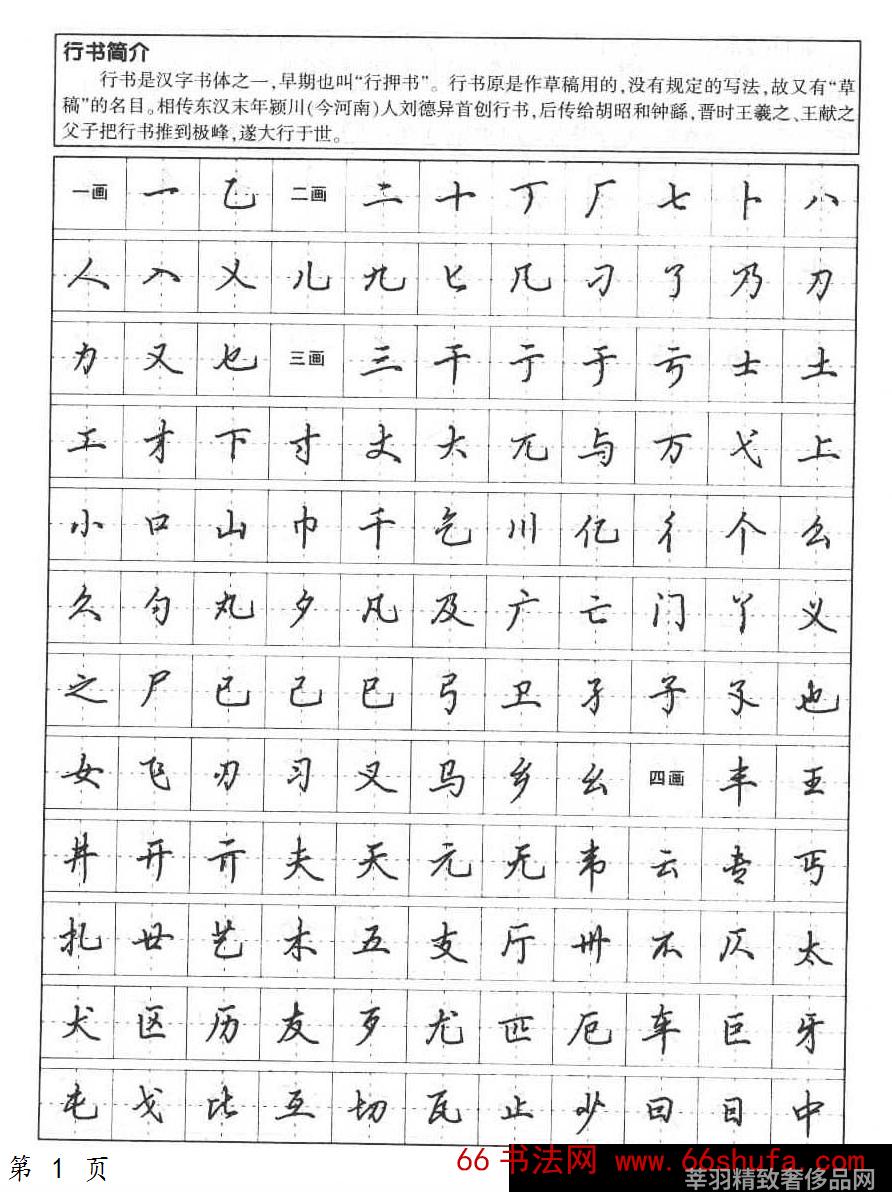 行书简介
行书是汉字书体之一,早期也叫“行押书”。行书原是作草稿用的,没有规定的写法,故又有“草
稿”的名目。相传东汉末年颍川(今河南)人刘德昇首创行书,后传给胡昭和钟繇,晋时王羲之、王献之
父子把行书推到极峰,遂大行于世。
一画 一 乙 二画 二 十 丁 厂 七 卜 八
人 入 乂 儿 九 匕 几 刁 了 乃 刀
力 又 乜 三画 三 干 亍 于 亏 士 土
工 才 下 寸 丈 大 兀 与 万 弋 上
小 口 山 巾 千 乞 川 亿 彳 个 么
久 勺 丸 夕 凡 及 广 亡 门 丫 义
之 尸 已 己 巳 弓 卫 孑 子 孓 也
女 飞 刃 习 叉 马 乡 幺 四画 丰 王
井 开 亓 夫 天 元 无 韦 云 专 丐
扎 廿 艺 木 五 支 厅 卅 不 仄 太
犬 区 历 友 歹 尤 匹 厄 车 巨 牙
屯 戈 比 互 切 瓦 止 少 曰 日 中
第 1 页
66书法网 www.66shufa.com
莘羽精致奢侈品网